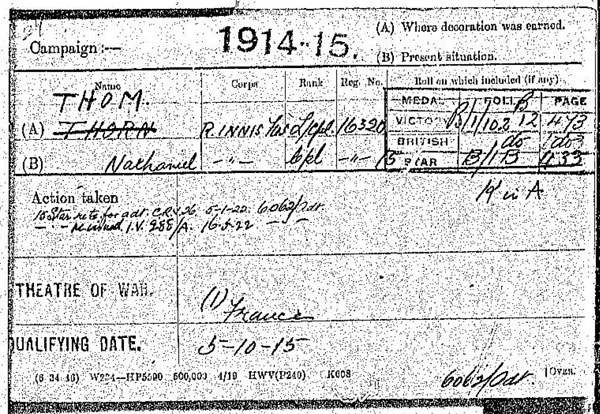 Campaign :— 1914-15. (A) Where decoration was earned.
(B) Present situation.
Name Corps Rank Reg. No. Roll on which included (if any).
THOM. MEDAL ROLL PAGE
(A) THORN R. INNIS Fus L/cpl. 16320 VICTORY B/1/102 B12 473
BRITISH do do
(B) Nathaniel —"— Cpl —"— 15 STAR B/1 B 433
K in A
Action taken
15 Star retd for adt. CRV 26 5-1-22. 6062/Adt.
—"— reissued I.V. 288/A. 16.5.22 —"—
THEATRE OF WAR. (1) France
QUALIFYING DATE. 5-10-15
(6 34 46) W234—HP5590 500,000 4/19 HWV(P240) K608
6062/Adt. [OVER.